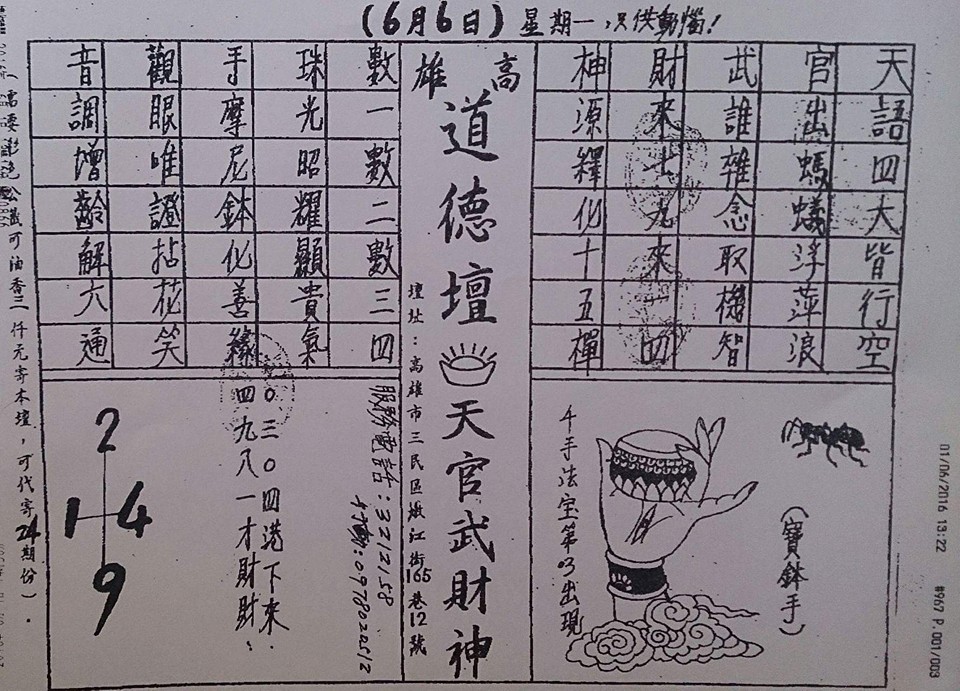 (6月6日)星期一,只供動腦!
天語四大皆行空
官出螞蟻浮萍浪
武誰雜念取機智
財來七九來一四
神源釋化十五樿
(寶鉢手)
千手法寶第03出現
高雄
道德壇
天官武財神
壇址:高雄市三民區墩江街165巷12號
數一數二數三四
珠光昭耀顯貴氣
手摩尼鉢化善緣
觀眼唯證拈花笑
音調增齡解六通
服務電話:3212158
行動:0978022512
〇三〇四港下來.
四九八一才財財:
2
1 4
9
(需要彩色公藏可油香三仟元寄本壇,可代寄24期份).
01/06/2016 13:22 #967 P.001/003